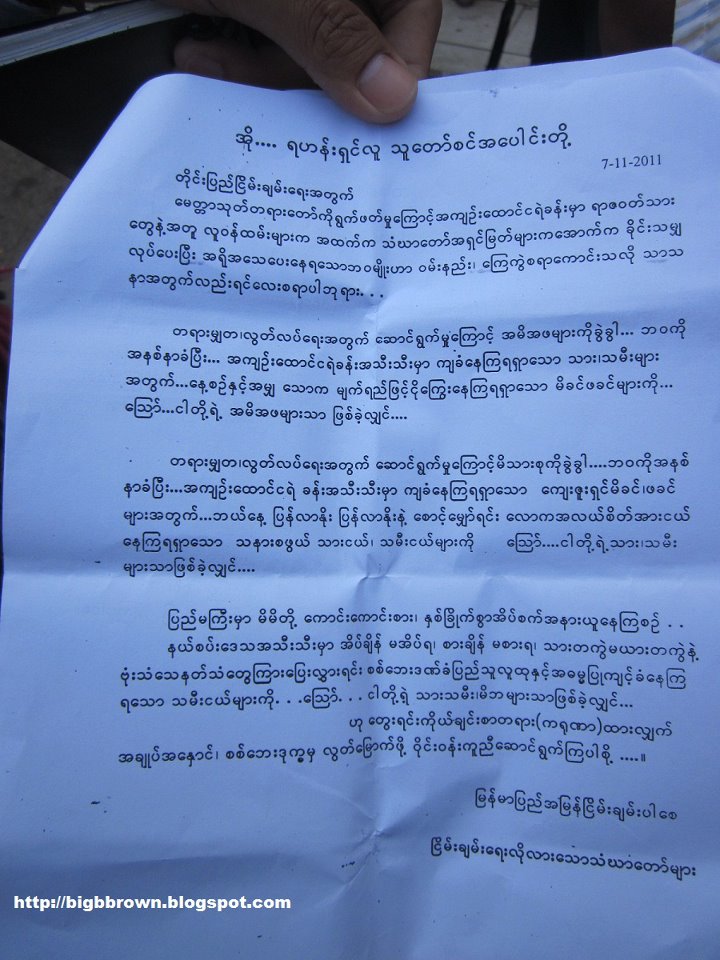 အို.... ရဟန်းရှင်လူ သူတော်စင်အပေါင်းတို့
7-11-2011
တိုင်းပြည်ငြိမ်းချမ်းရေးအတွက်
မေတ္တာသုတ်တရားတော်ကိုရွက်ဖတ်မှုကြောင့်အကျဉ်းထောင်ငရဲခန်းမှာ ရာဇဝတ်သား
တွေနဲ့အတူ လူဝန်ထမ်းများက အထက်က သံဃာတော်အရှင်မြတ်များကအောက်က ခိုင်းသမျှ
လုပ်ပေးပြီး အရိုအသေပေးနေရသောဘဝမျိုးဟာ ဝမ်းနည်း၊ ကြေကွဲစရာကောင်းသလို သာသ
နာအတွက်လည်းရင်လေးစရာပါဘုရား. . .
တရားမျှတ၊လွတ်လပ်ရေးအတွက် ဆောင်ရွက်မှုကြောင့် အမိအဖများကိုခွဲခွါ... ဘဝကို
အနစ်နာခံပြီး... အကျဉ်းထောင်ငရဲခန်းအသီးသီးမှာ ကျခံနေကြရရှာသော သား၊သမီးများ
အတွက်...နေ့စဉ်နှင့်အမျှ သောက မျက်ရည်ဖြင့်ငိုကြွေးနေကြရရှာသော မိခင်ဖခင်များကို...
ဪ...ငါတို့ရဲ့ အမိအဖများသာ ဖြစ်ခဲ့လျှင်....
တရားမျှတ၊လွတ်လပ်ရေးအတွက် ဆောင်ရွက်မှုကြောင့်မိသားစုကိုခွဲခွါ....ဘဝကိုအနစ်
နာခံပြီး...အကျဉ်းထောင်ငရဲ ခန်းအသီးသီးမှာ ကျခံနေကြရရှာသော ကျေးဇူးရှင်မိခင်၊ဖခင်
များအတွက်...ဘယ်နေ့ ပြန်လာနိုး ပြန်လာနိုးနဲ့ စောင့်မျှော်ရင်း လောကအလယ်စိတ်အားငယ်
နေကြရရှာသော သနားစဖွယ် သားငယ်၊ သမီးငယ်များကို ဪ....ငါတို့ရဲ့သား၊သမီး
များသာဖြစ်ခဲ့လျှင်....
ပြည်မကြီးမှာ မိမိတို့ ကောင်းကောင်းစား၊ နှစ်ခြိုက်စွာအိပ်စက်အနားယူနေကြစဉ် . .
နယ်စပ်းဒေသအသီးသီးမှာ အိပ်ချိန် မအိပ်ရ၊ စားချိန် မစားရ၊ သားတကွဲမယားတကွဲနဲ့
ဗုံးသံသေနတ်သံတွေကြားပြေးလွှားရင်း စစ်ဘေးဒဏ်ခံပြည်သူလူထုနှင့်အဓမ္မပြုကျင့်ခံနေကြ
ရသော သမီးငယ်များကို. . .ဪ. . . ငါတို့ရဲ့ သားသမီး၊မိဘများသာဖြစ်ခဲ့လျှင်...
ဟု တွေးရင်းကိုယ်ချင်းစာတရား(ကရုဏာ)ထားလျှက်
အချုပ်အနှောင်၊ စစ်ဘေးဒုက္ခမှ လွတ်မြောက်ဖို့ ဝိုင်းဝန်းကူညီဆောင်ရွက်ကြပါစို့ ....။
မြန်မာပြည်အမြန်ငြိမ်းချမ်းပါစေ
ငြိမ်းချမ်းရေးလိုလားသောသံဃာတော်များ
http://bigbbrown.blogspot.com